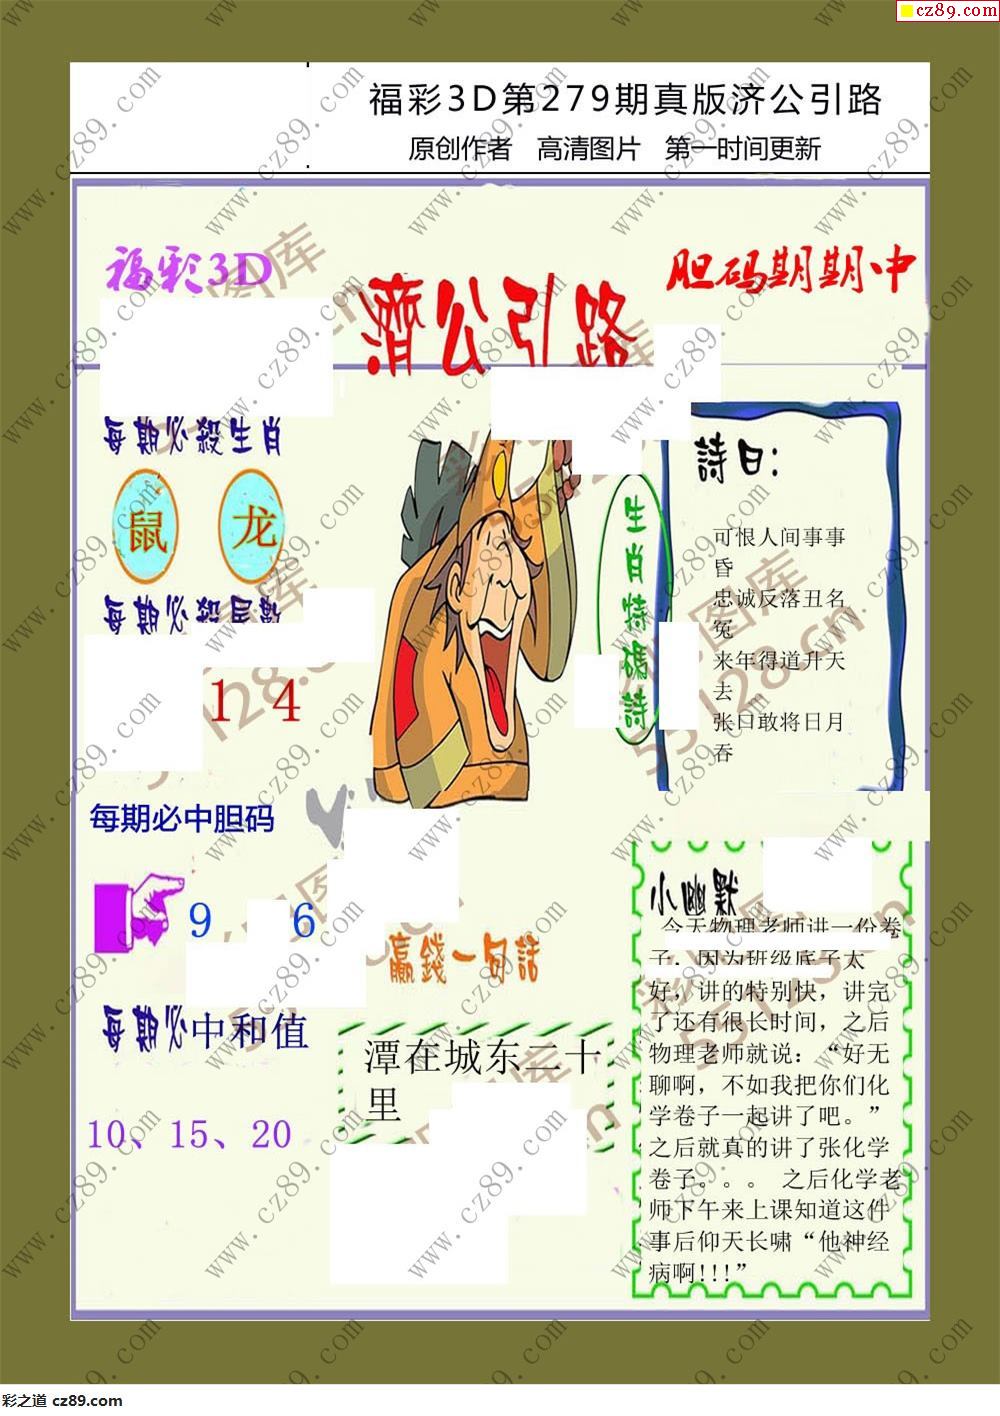 cz89.com
福彩3D第279期真版济公引路
原创作者 高清图片 第一时间更新
福彩3D
胆码期期中
濟公引路
每期必殺生肖
鼠 龙
每期必殺尾數
1 4
每期必中胆码
9 6
每期必中和值
10、15、20
生肖特碼詩
詩曰：
可恨人间事事
昏
忠诚反落丑名
冤
来年得道升天
去
张口敢将日月
吞
赢錢一句話
潭在城东二十
里
小幽默
今天物理老师讲一份卷
子，因为班级底子太
好，讲的特别快，讲完
了还有很长时间，之后
物理老师就说：“好无
聊啊，不如我把你们化
学卷子一起讲了吧。”
之后就真的讲了张化学
卷子。。。 之后化学老
师下午来上课知道这件
事后仰天长啸“他神经
病啊!!!”
www.cz89.com
彩之道 cz89.com